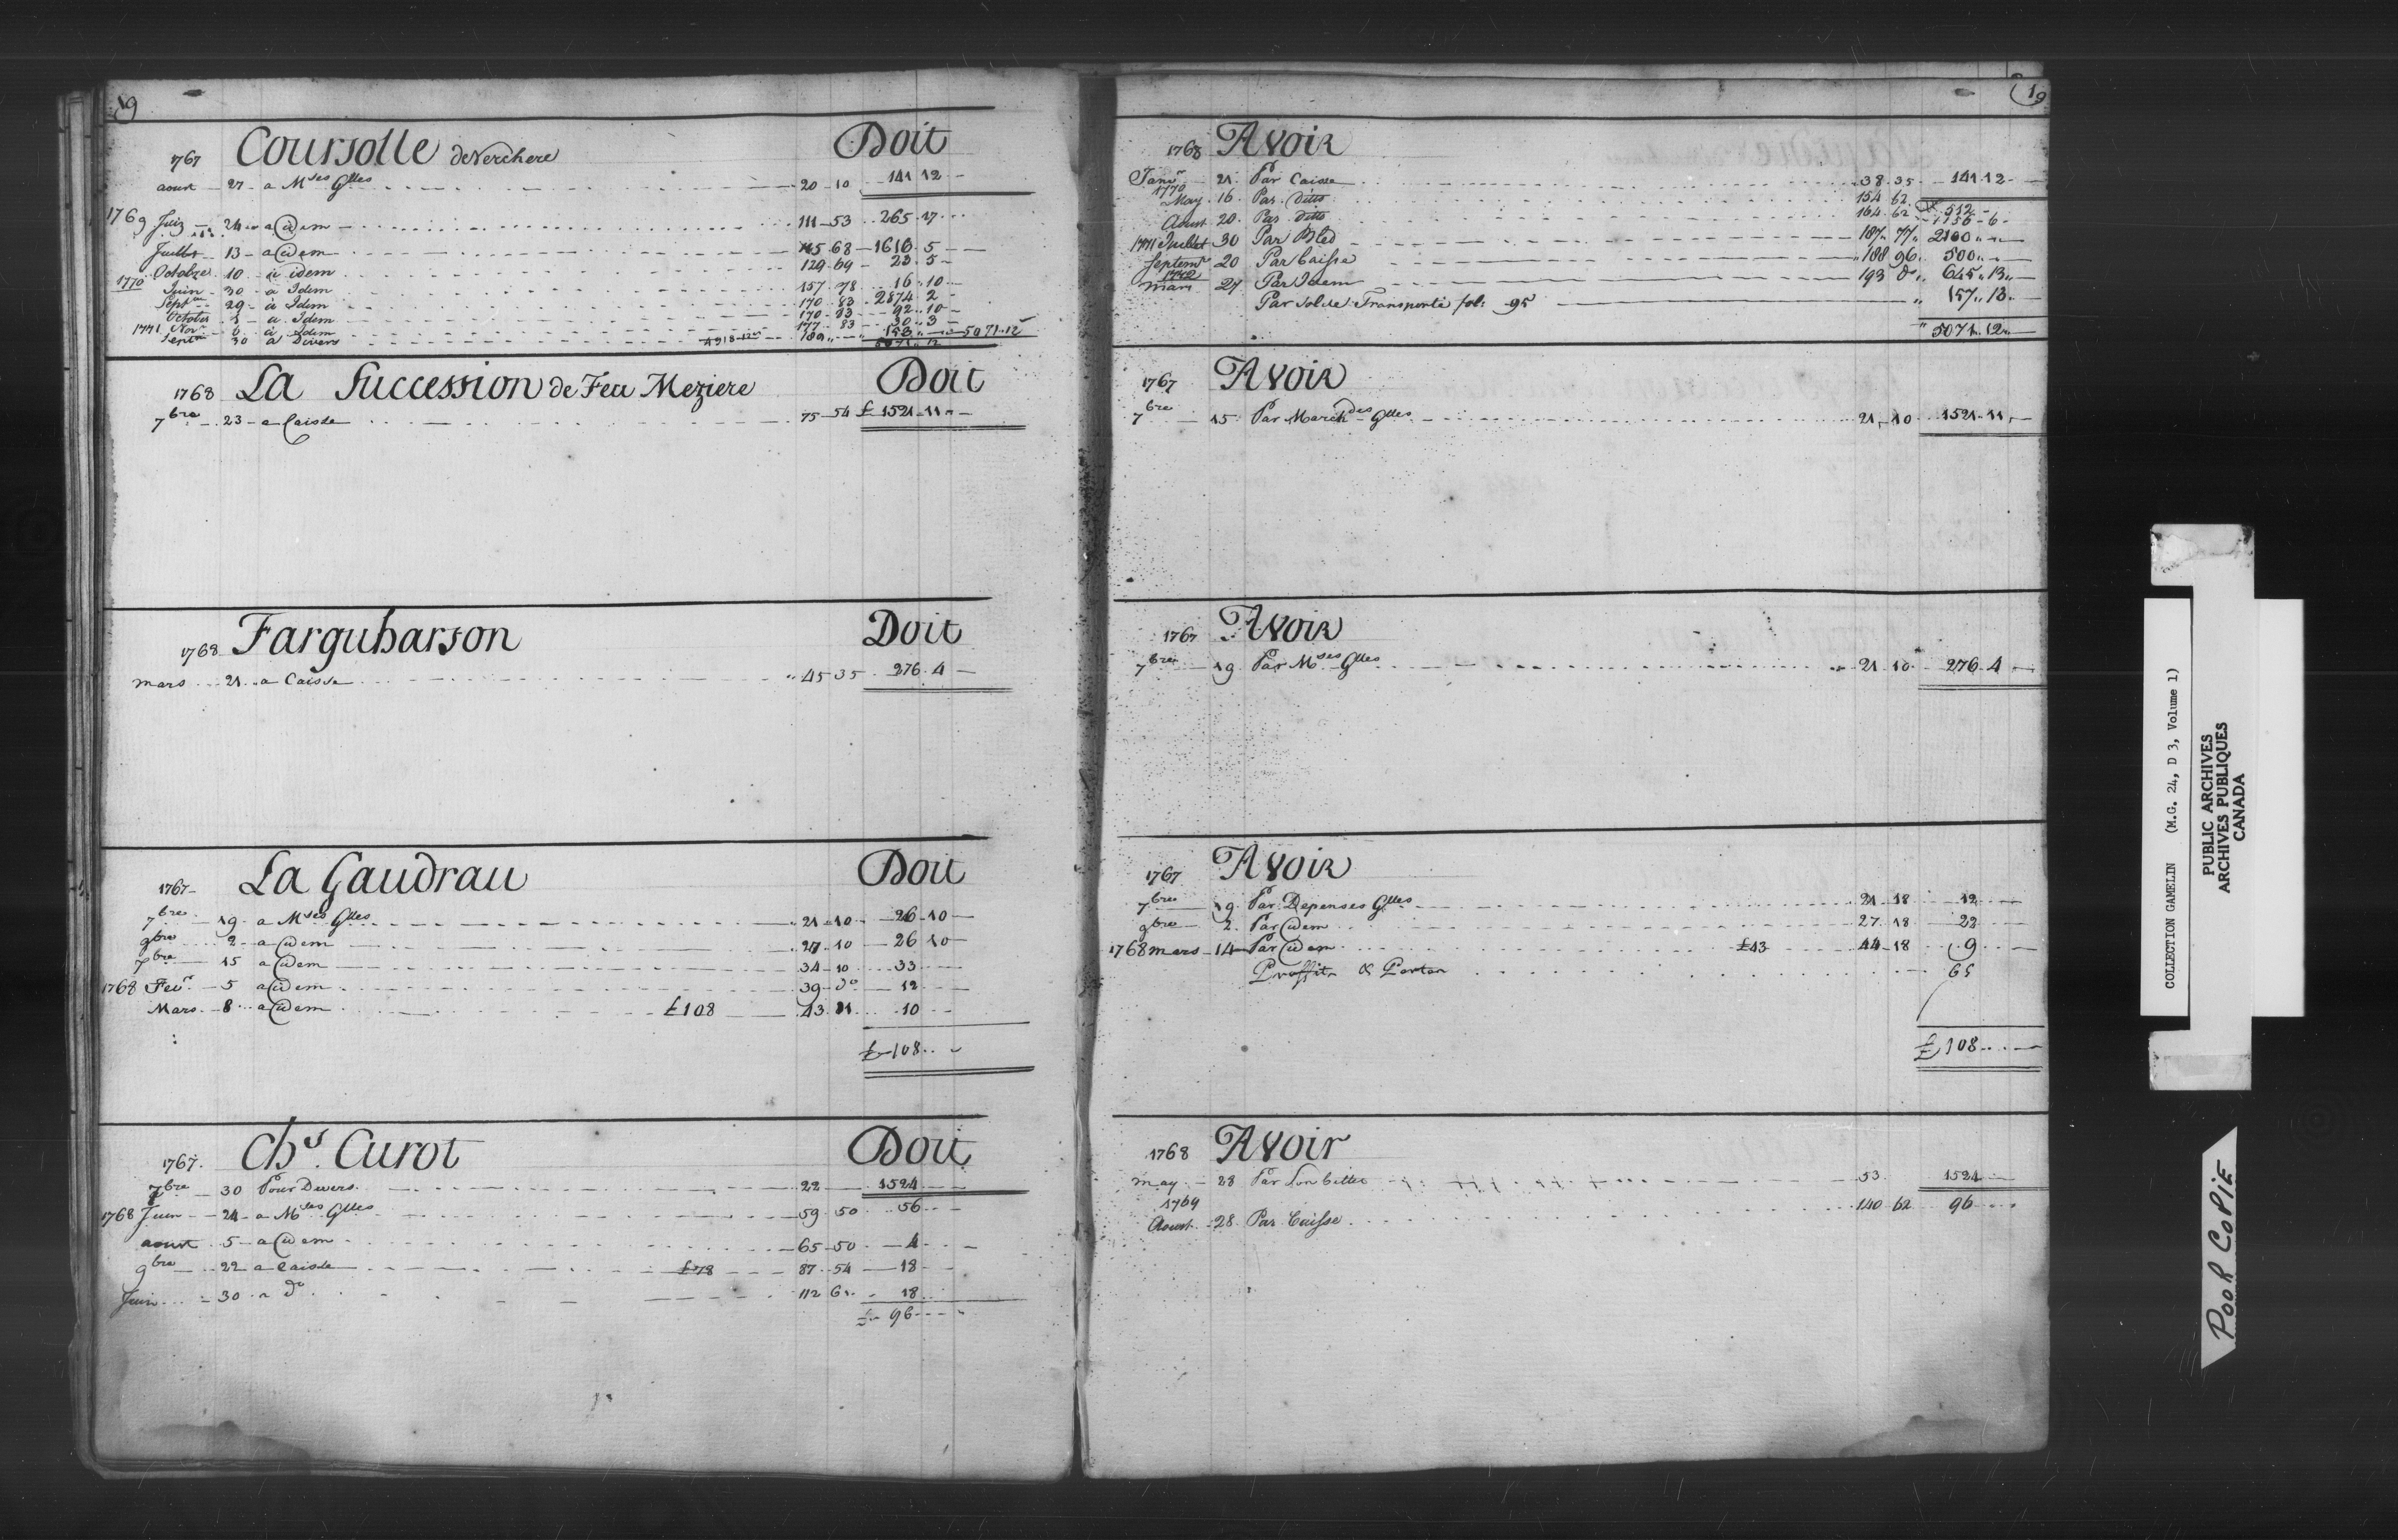 19
Coursolle de Verchere Doit
1767
aoust 27 a Mses Glles 20 10 141 12
1769 Juin 24 a idem 111 53 265 17
Juillet 13 a idem 68 1616 5
Octobre 10 a idem 129 69 23 5
1770 Juin 30 a Idem 157 78 16 10
Septre 29 à Idem 170 83 2874 2
Octobre 1 a Idem 170 83 92 10
Novr 6 à Idem 177 83 30 3
1771 Septre 30 a Divers 4918 12 189 153 5071 12
5071 12
1768 La Succession de Feu Meziere Doit
7bre 23 a Caisse 75 54 £ 1521 11
1768 Farguharson Doit
mars 21 a Caisse 45 35 276 4
1767 La Gaudrau Doit
7bre 19 a Mses Glles 21 10 26 10
9bre 2 a idem 27 10 26 10
7bre 15 a idem 34 10 33
1768 Fevr 5 a idem 39 do 12
Mars 8 a idem £108 43 21 10
£ 108
1767 Chs Curot Doit
7bre 30 Pour Divers 22 1524
1768 Juin 24 a Mses Glles 59 50 56
aoust 5 a idem 65 50 4
9bre 22 a Caisse £78 87 54 18
Juin 30 a do 112 61 18
£ 96
19
1768 Avoir
Janvr 21 Par Caisse 38 35 141 12
1770 May 16 Par ditto 154 62 512
Aoust 20 Par ditto 164 62 1156 6
1771 Juillet 30 Par Bled 187 77 2100
Septemr 20 Par Caisse 188 96 500
1772 mars 27 Par Idem 193 do 645 13
Par Solde Transporté fol: 95 157 13
5071 12
1767 Avoir
7bre 15 Par Marchdes Glles 21 10 1521 11
1767 Avoir
7bre 19 Par Mses Glles 21 10 276 4
1767 Avoir
7bre 19 Par Depenses Glles 21 18 12
9bre 2 Par idem 27 18 22
1768 mars 14 Par idem £43 44 18 9
Proffits & Pertes 65
£ 108
1768 Avoir
may 28 Par Son billet 53 1524
1769
Aoust 28 Par Caisse 140 62 96
COLLECTION GAMELIN (M.G. 24, D 3, Volume 1)
PUBLIC ARCHIVES
ARCHIVES PUBLIQUES
CANADA
POOR COPIE